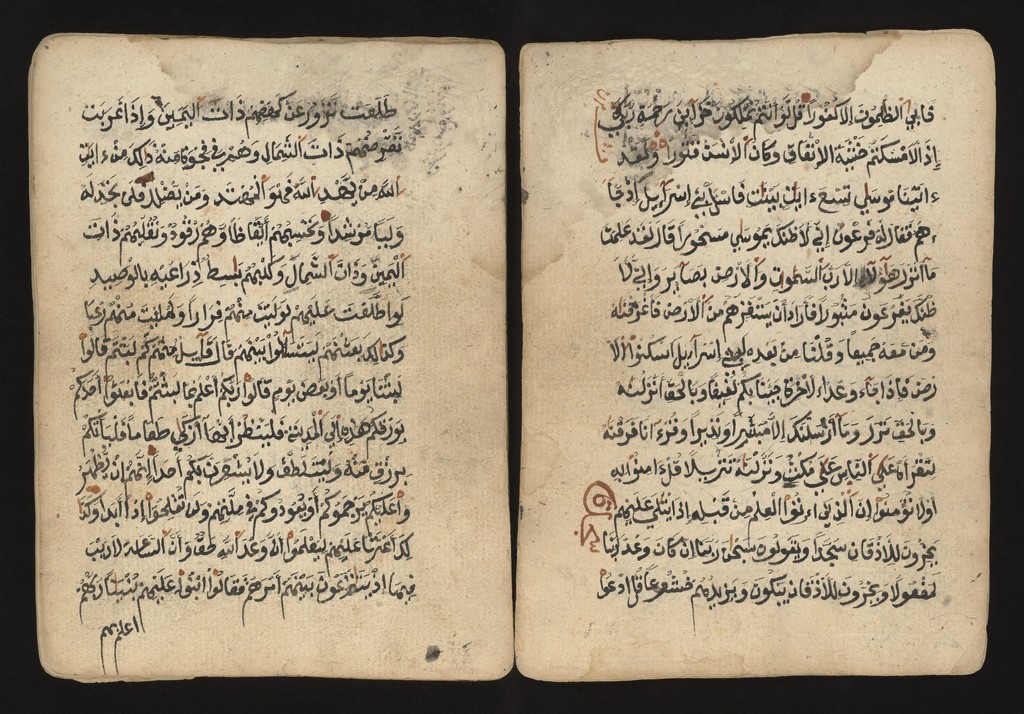 فابى الظلمون الا كفورا قل لو انتم تملكون خزاين رحمة ربي
إذا لامسكتم خشية الانفاق وكان الانسن قتورا ولقد
ءاتينا موسى تسع ءايت بينت فاسل بني إسراءيل إذ جا
ءهم فقال له فرعون إني لاظنك يموسى مسحورا قال لقد علمت
ما أنزل هؤلاء الا رب السموات والارض بصاير وإني لا
ظنك يفرعون مثبورا فاراد أن يستفزهم من الارض فاغرقنه
ومن معه جميعا وقلنا من بعده لبني إسراءيل اسكنوا الا
رض فإذا جاء وعد الاخرة جينا بكم لفيفا وبالحق أنزلنه
وبالحق نزل وما أرسلنك إلا مبشرا ونذيرا وقرءانا فرقنه
لتقرأه على الناس على مكث ونزلنه تنزيلا قل ءامنوا به
أولا تؤمنوا إن الذين أوتوا العلم من قبله إذا يتلى عليهم
يخرون للاذقان سجدا ويقولون سبحن ربنا إن كان وعد ربنا
لمفعولا ويخرون للاذقان يبكون ويزيدهم خشوعا قل ادعوا
طلعت تزور عن كهفهم ذات اليمين وإذا غربت
تقرضهم ذات الشمال وهم في فجوة منه ذالك من ءايت
الله من يهد الله فهو المهتد ومن يضلل فلن تجد له
وليا مرشدا وتحسبهم أيقاظا وهم رقود ونقلبهم ذات
اليمين وذات الشمال وكلبهم بسط ذراعيه بالوصيد
لو اطلعت عليهم لوليت منهم فرارا ولمليت منهم رعبا
وكذالك بعثنهم ليتساءلوا بينهم قال قايل منهم كم لبثتم قالوا
لبثنا يوما أو بعض يوم قالوا ربكم أعلم بما لبثتم فابعثوا أحدكم
بورقكم هذه إلى المدينة فلينظر أيها أزكى طعاما فلياتكم
برزق منه وليتلطف ولا يشعرن بكم أحدا إنهم إن يظهر
وا عليكم يرجموكم أو يعيدوكم في ملتهم ولن تفلحوا إذا أبدا وكذا
لك أعثرنا عليهم ليعلموا أن وعد الله حق وأن الساعة لا ريب
فيها إذ يتنزعون بينهم أمرهم فقالوا ابنوا عليهم بنينا ربهم
اعلم بهم